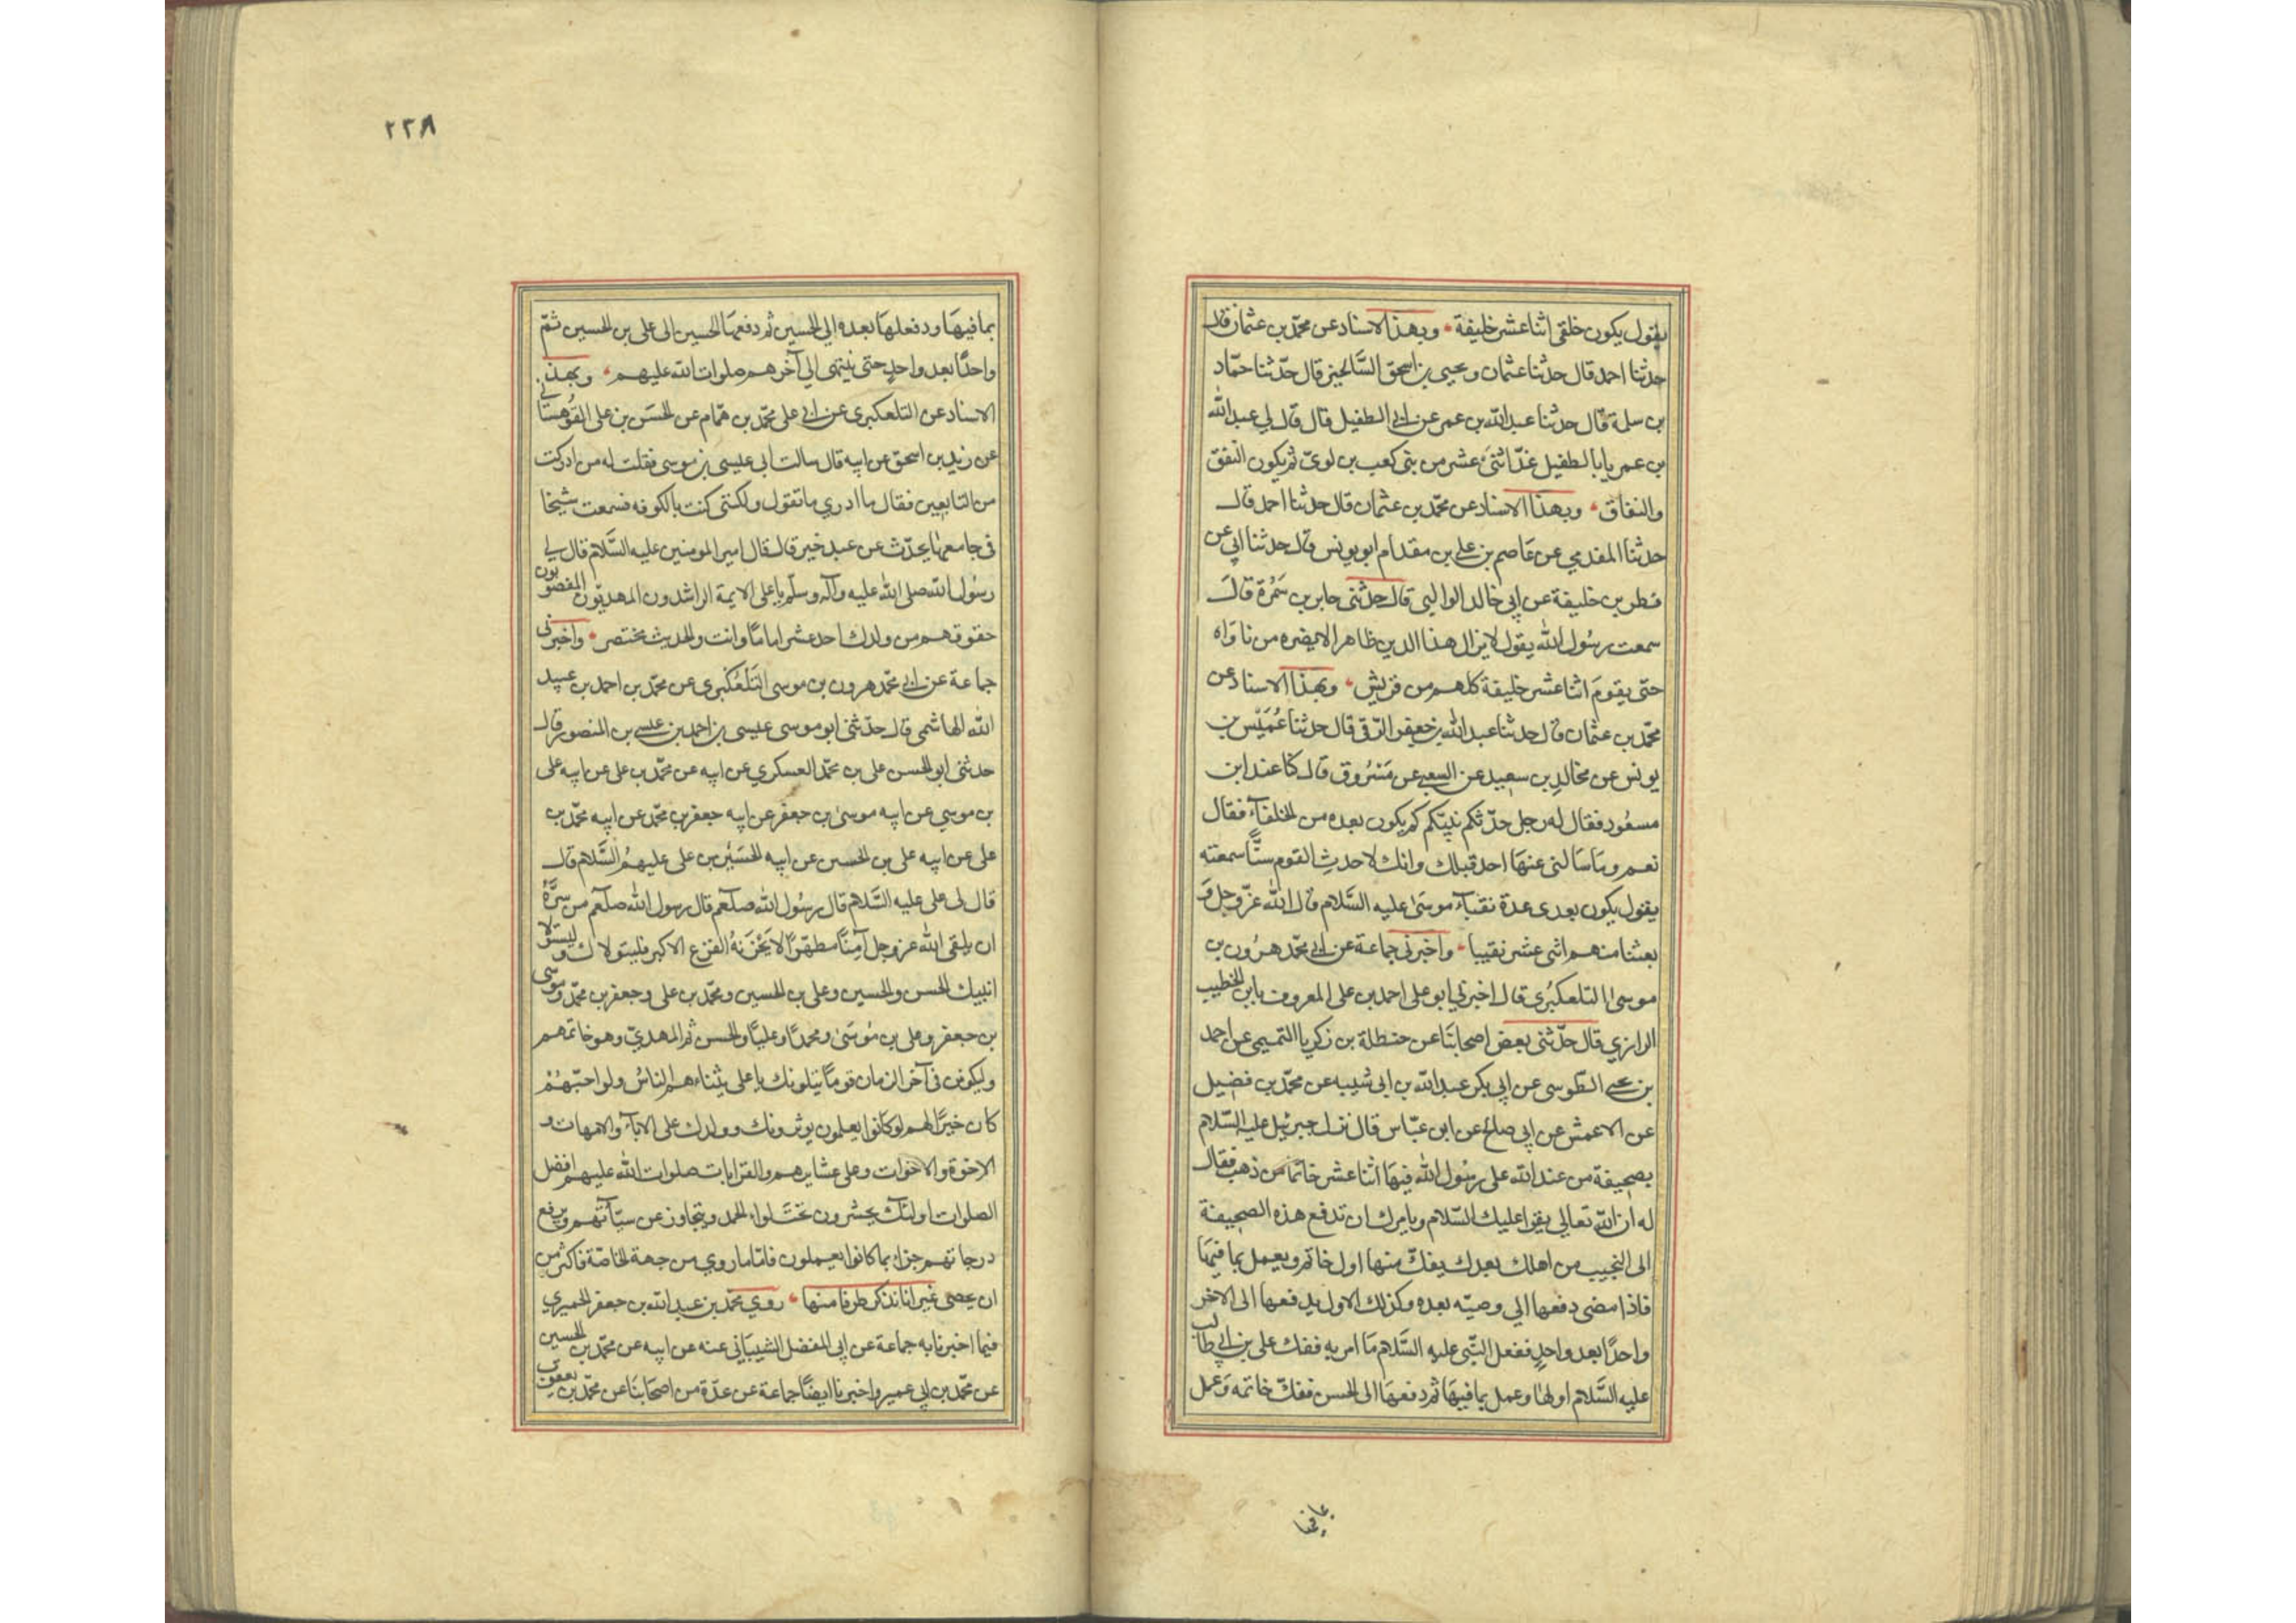 يقول يكون خلفي اثنا عشر خليفة وبهذا الاسناد عن محمّد بن عثمان قال
حدثنا احمد قال حدثنا عثمان ويحيى بن اسحق السَّالحيني قال حدّثنا حمّاد
بن سلمة قال حدثنا عبد الله بن عمر عن ابي الطفيل قال قال لي عبد الله
بن عمر يا با الطفيل عدّ اثنى عشر من بني كعب بن لويّ ثم يكون النقق
والنفاق وبهذا الاسناد عن محمّد بن عثمان قال حدثنا احمد قال
حدثنا المقدمي عن عاصم بن علي بن مقدام ابو يونس قال حدثنا ابي عن
فطر بن خليفة عن ابي خالد الوالبي قال حدثني جابر بن سَمُرة قالَ
سمعت رسُول الله يقول لا يزال هذا الدين ظاهرا لا يضره من ناواه
حتى يقومَ اثنا عشر خليفة كلهم من قريش وبهذا الاسناد عن
محمّد بن عثمان قال حدثنا عبد الله بن جعفر الرّقي قال حدثنا عُمَيْس بن
يونس عن مخالدِ بن سعيد عن عن مَسْرُوق قال كنا عند ابن
مسعُود فقال له رجل حدّثكم نبيّكم كم يكون بعده من الخلفآء فقال
نعم وما سَالني عنها احد قبلك وانك لاحدث القوم سنًّا سمعته
يقول يكون بعدى عدة نقبآء موسَى عليه السَّلام قال الله عزّ وجل وَ
بعثنا منهم اثنى عشر نقيبا واخبرني جماعة عن ابي محمّد هرُون بن
موسى التلعكبُرى قال اخبرني ابو على احمد بن على المعروف بابن الخطيب
الرازي قال حدّثني بعض اصحابنَا عن حنظلة بن زكريا التميمي عن احمد
بن يحيى الطّوسى عن ابي بكر عبد الله بن ابي شيبه عن محمّد بن فضيل
عن الاعمش عن ابي صلح عن ابن عبّاس قال نزل جبرئيل عليه السّلام
بصحيفة من عند الله على رسُول الله فيها اثنا عشر خاتما من ذهب فقال
له ان الله تعالى يقرا عليك السّلام ويامرك ان تدفع هذه الصحيفة
الى النجيب من اهلك بعدك يفكّ منها اول خاتم ويعمل بما فيهَا
فاذا مضى دفعها الي وصيّه بعده وكذلك الاول يدفعها الى الاخر
واحدًا بعد واحدٍ ففعل النّبى عليه السَّلام مَا امر به ففك على بن ابي طالب
عليه السَّلام اولها وعمل بما فيهَا ثم دفعهَا الى الحسن ففكّ خاتمه وَعمل
بما فيها
٢٢٨
بما فيهَا ودفعلها بعده الي الحسين ثم دفعهَا الحسين الى على بن الحسين ثمّ
واحدًا بعد واحدٍ حتى ينتهى الي آخرهم صلوات الله عليهم وبهذ
الاسناد عن التلعكبرى عن ابي على محمّد بن همّام عن الحسَن بن على القُوهستاني
عن زيد بن اسحق عن ابيه قال سالت ابي عيسى بن موسى فقلت له من ادركت
من التابعين فقال ما ادري ما تقول ولكنى كنت بالكوفه فسمعت شيخا
فى جامعها يحدّث عن عبد خير قال قال امير المومنين عليه السَّلام قال لي
رسُول الله صلى الله عليه وآله وسلّم يا على الايمة الراشدون المهديّون المغصوبون
حقوقهم من ولدك احد عشر امامًا وانت والحديث مختصر واخبرنى
جماعة عن ابي محمّد هرون بن موسى التَلعُكبرى عن محمّد بن احمد بن عبيد
الله الهاشمى قال حدّثني ابو موسى عيسى بن احمد بن عيسى بن المنصور قال
حدثني ابو الحسن على بن محمّد العسكري عن ابيه عن محمّد بن على عن ابيه على
بن موسي عن ابيه موسىٰ بن جعفر عن ابيه جعفر بن محمّد عن ابيه محمّد بن
على عن ابيه على بن الحسين عن ابيه الحسَيْن بن على عليهمُ السَّلام قال
قال لى على عليه السَّلام قال رسُول الله صلعم قال رسول الله صلعم من سَرَّهُ
ان يلقى الله عز وجل آمِنًا مطهّرًا لا يَحْزَنهُ الفزع الاكبر فليتولاك وليتولّ
انبيك الحسن والحسين وعلى بن الحسين ومحمّد بن على وجعفر بن محمّد وموسى
بن جعفر وعلى بن مُوسَى ومحمدًا وعليًا والحسن ثم المهديّ وهو خاتمهم
وليكونن فى آخر الزمان قومًا يتلونك يا على يشناءهم الناسُ ولو احبّهُمْ
كان خيرًا لهم لو كانوا يعلمون يوثرونك وولدك على الابآء والامهات و
الاخوة والاخوات وعلى عشايرهم والقرابات صلوات الله عليهم افضل
الصلوات اولئك يحشرون تحتَ لواء الحمد ويتجاوز عن سيّآتهم ويرفع
درجاتهم جزاء بما كانوا يعملون فامّا ما روي من جهة الخاصّة فاكثر من
ان يحصى غير انا نذكر طرفا منها روي محمّد بن عبد الله بن جعفر الحميري
فيما اخبرنا به جماعة عن ابي المفضل الشيبَاني عنه عن ابيه عن محمّد بن الحسين
عن محمّد بن ابي عمير واخبرنا ايضًا جماعة عن عدّة من اصحَابنَا عن محمّد بن يعقوب